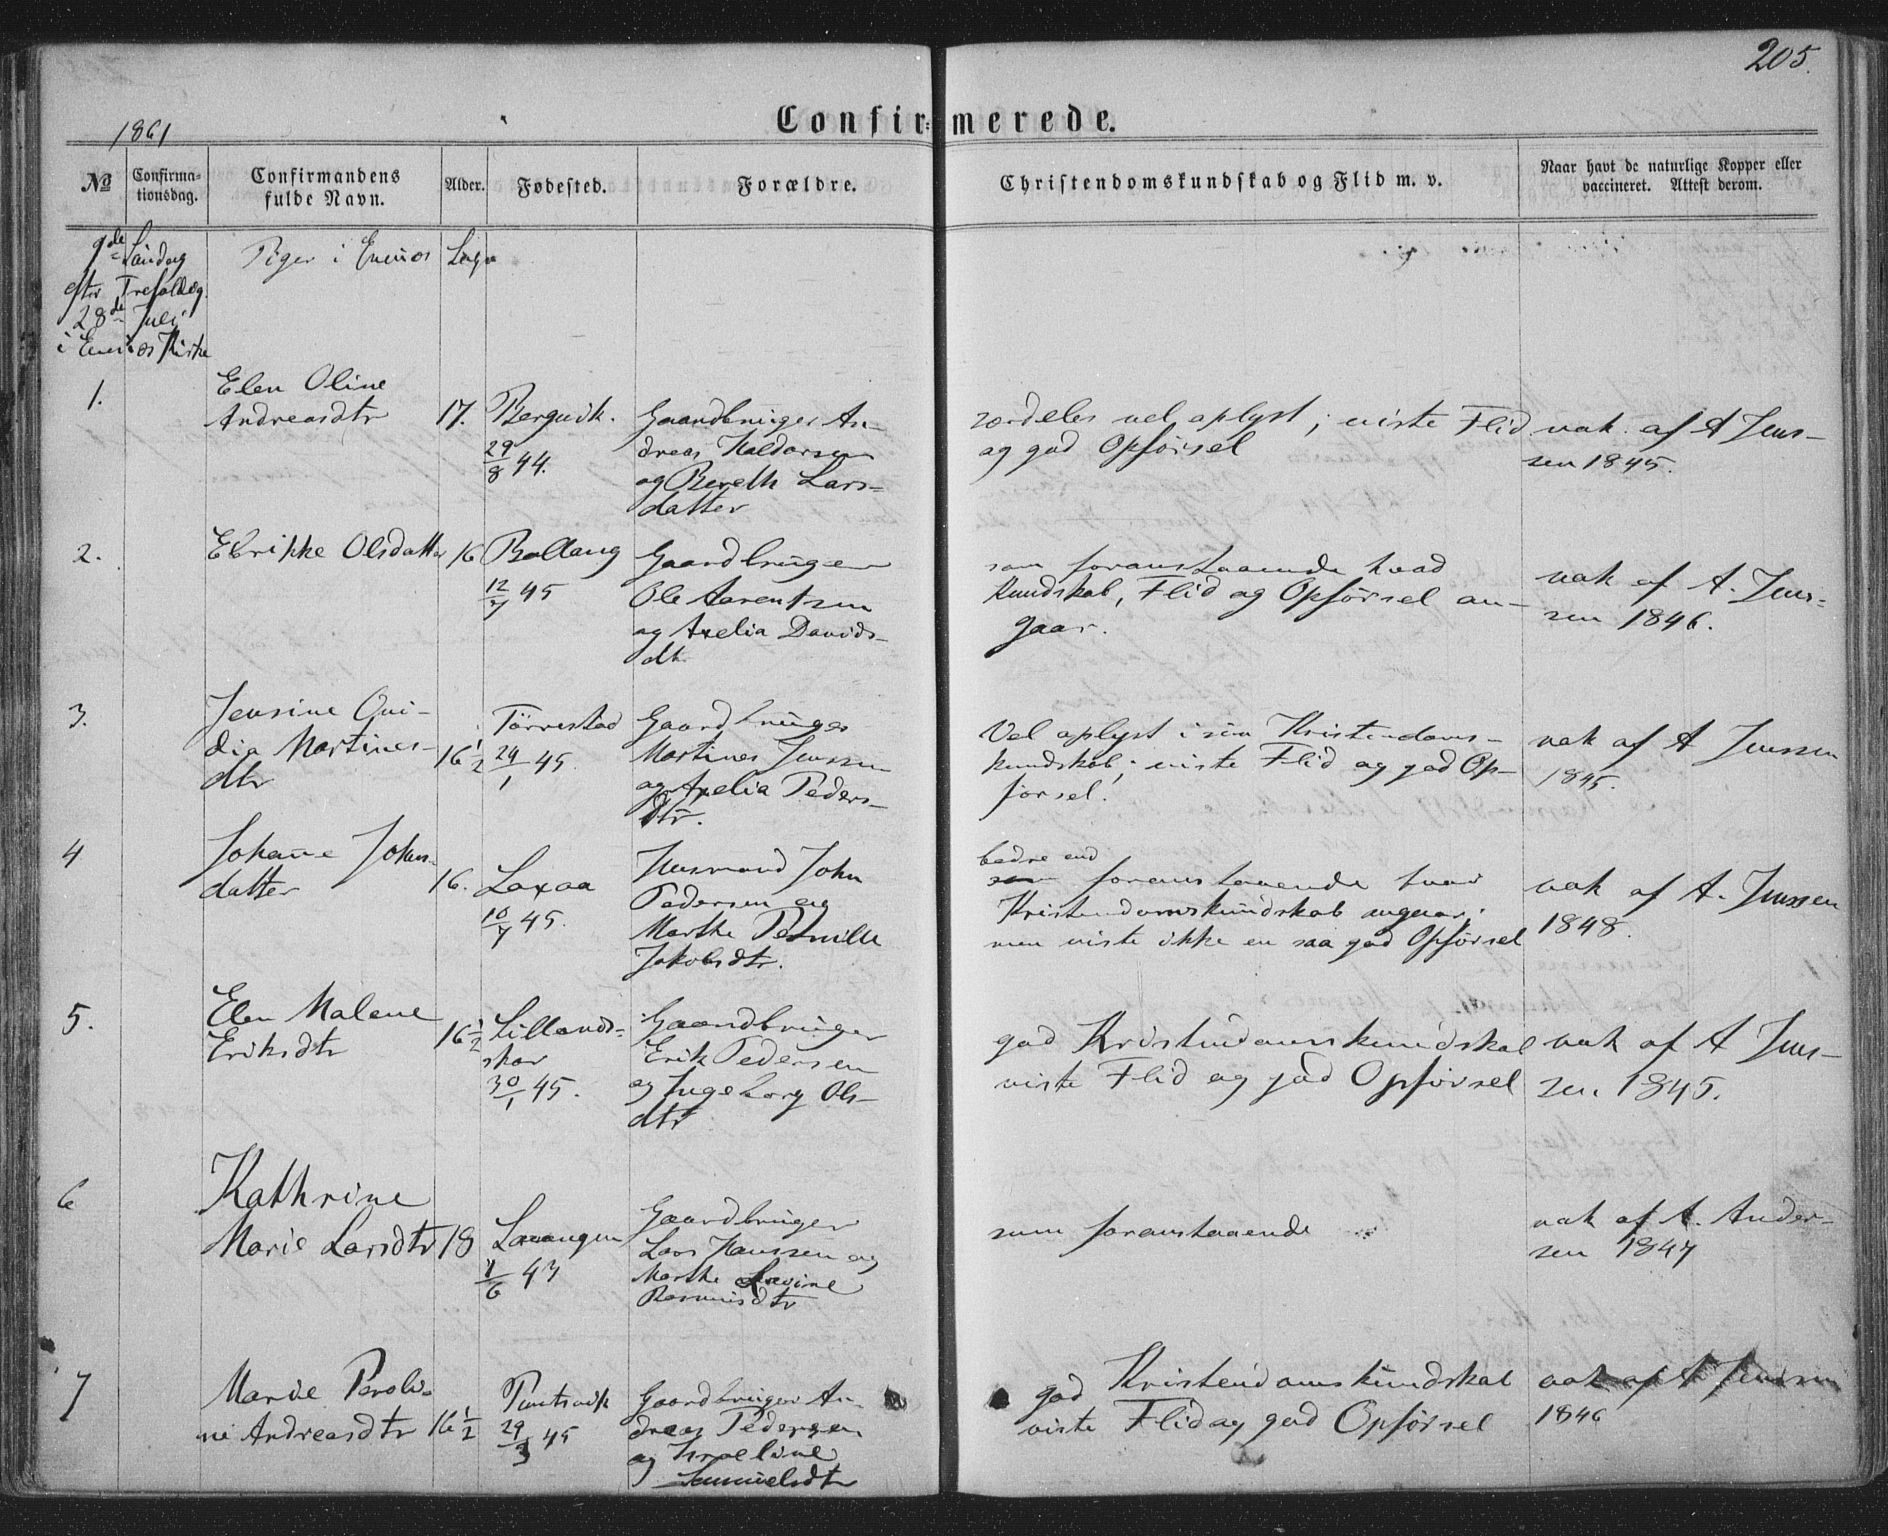 205.
Confir=merede.
1861
No
Confirma-
tionsdag.
Confirmandens
fulde Navn.
Alder.
Fødested.
Forældre.
Christendomskundskab og Flid m. v.
Naar havt de naturlige Kopper eller
vaccineret. Attest derom.
9de Søndag
efter Trefoldig.
28de Juli
i Evenæs Kirke
Piger i Evenæs Sogn
1.
Elen Oline
Andreasdtr
17.
Bergvik.
29/8 44.
Gaardbruger An-
dreas Haldorsen
og Bereth Lars-
datter
særdeles vel oplyst; viste Flid
og god Opførsel
vak. af A Jens-
sen 1845.
2.
Elrikke Olsdatter
16
Bollang
12/7 45
Gaardbruger
Ole Aarentsen
og Axelia Davids-
dtr
som foranstaaende hvad
Kundskab, Flid og Opførsel an-
gaar.
vak af A. Jens-
sen 1846.
3.
Jensine Ovi-
dia Martines-
dtr
16 1/2
Tørrestad
29/1 45.
Gaardbruger
Martines Jenssen
og Axelia Peders-
dtr.
Vel oplyst i sin Kristendoms-
kundskab; viste Flid og god Op-
førsel.
vak af A Jenssen
1845.
4
Johanne Johns-
datter
16.
Laxaa
10/7 45.
Husmand John
Pedersen og
Marthe Petnille
Jakobsdtr.
bedre end
som foranstaaende hvad
Kristendomskundskab angaar;
men viste ikke en saa god Opførsel
vak af A. Jenssen
1848.
5.
Elen Malene
Eriksdtr
16 1/2
Lillands-
skar
30/1 45.
Gaardbruger
Erik Pedersen
og Ingeborg Ols-
dtr
god Kristendomskundskab
viste Flid og god Opførsel
vak af A Jens-
sen 1845.
6
Kathrine
Marie Larsdtr
18
Lavangen
1/6 43
Gaardbruger
Lars Hanssen og
Marthe Lovine
Rasmusdtr
som foranstaaende
vak af A. Ander-
sen 1847
7
Marie Peroli-
ne Andreasdtr
16 1/2
Puntsvik
29/3 45
Gaardbruger An-
dreas Pedersen
og Israeline
Samuelsdtr
god Kristendomskundskab
viste Flid og god Opførsel
vak af A Jenssen
1846